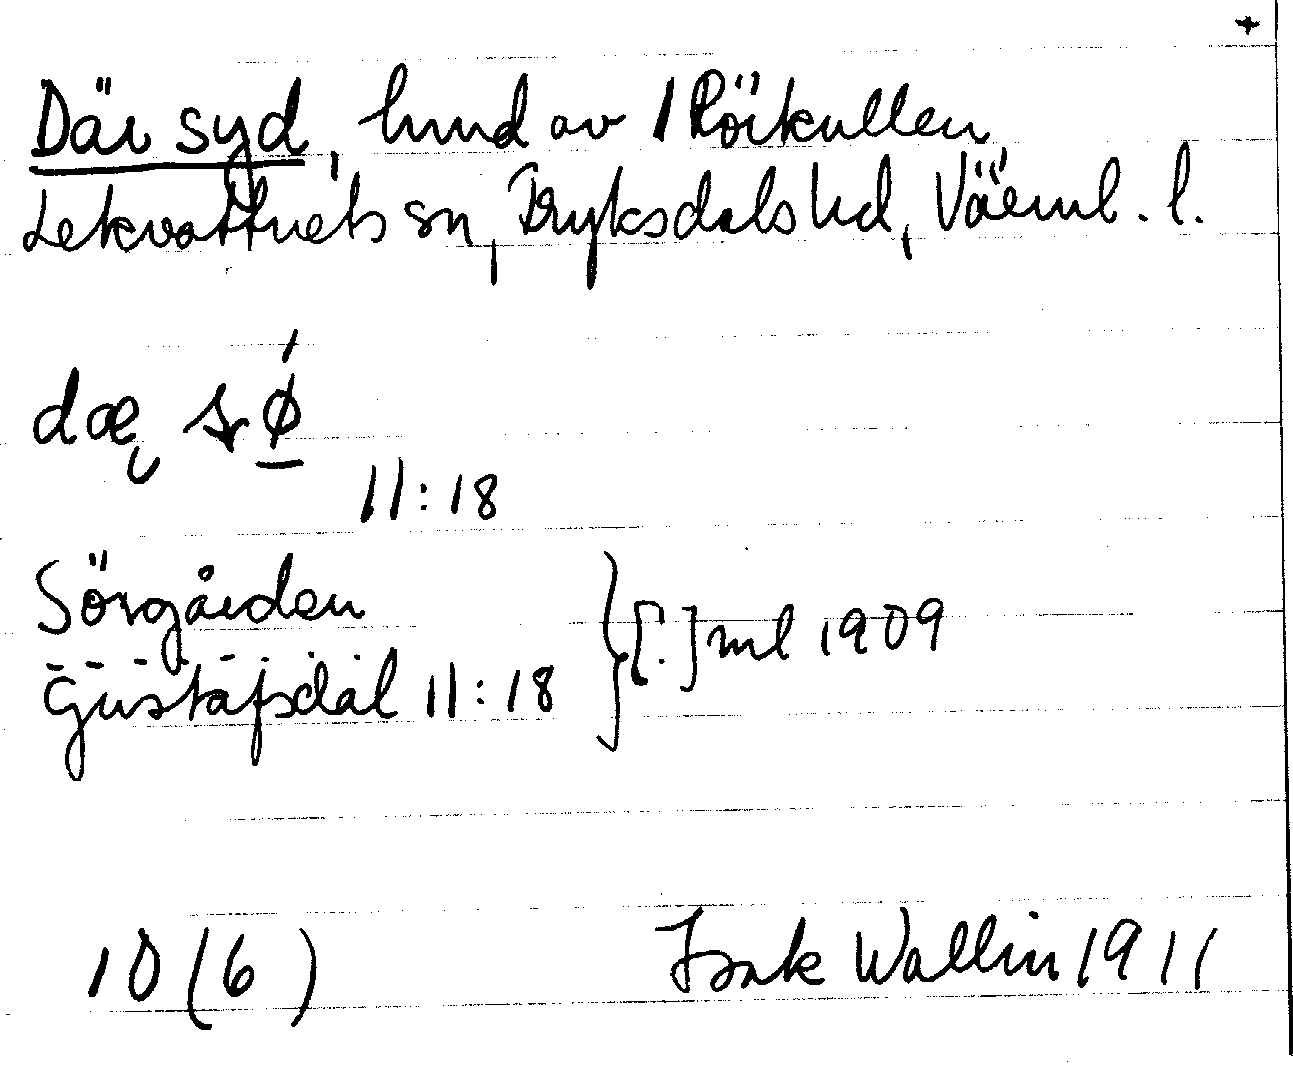 +
Där syd, hmd av 1 Rörkullen,
Lekvattnets sn, Fryksdals hd, Värml. l.
dæ sø
11:18
Sörgården
Gustafsdal 11:18 } [?] ml 1909
10 (6) Isak Wallin 1911